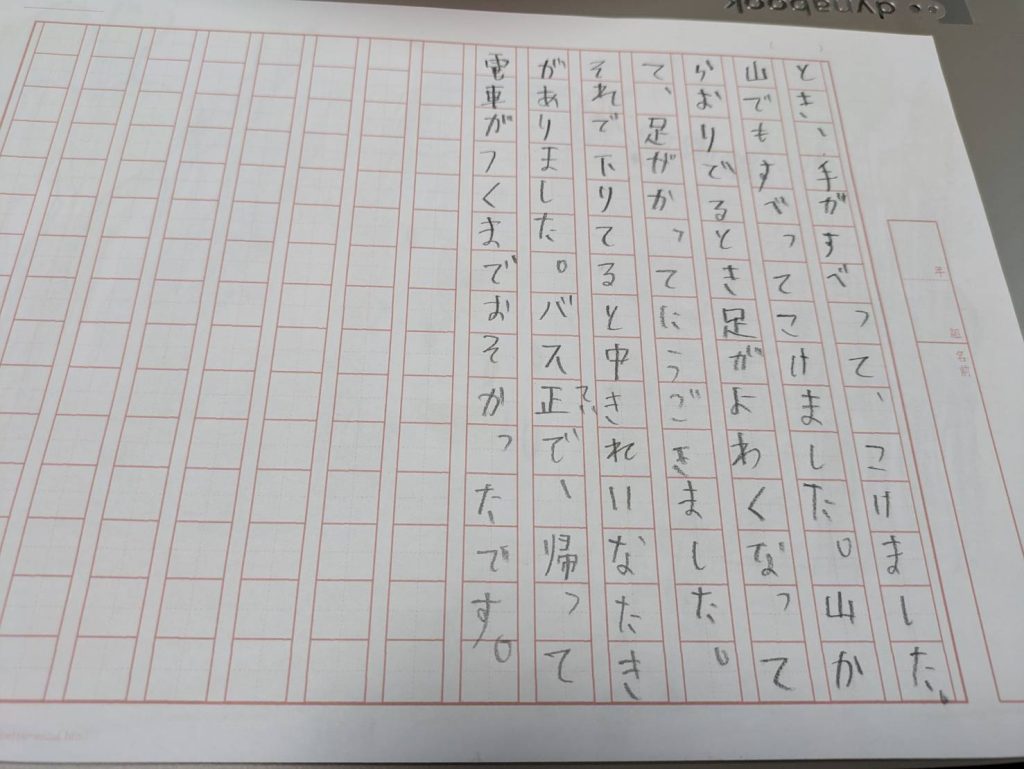 とき、手がすべって、こけました。
山でもすべってこけました。山か
らおりでるとき足がよわくなって
て、足がかってにうごきました。
それで下りてると中きれいなたき
がありました。バス正で、帰って
電車がつくまでおそかったです。
年 組
名前
dynabook